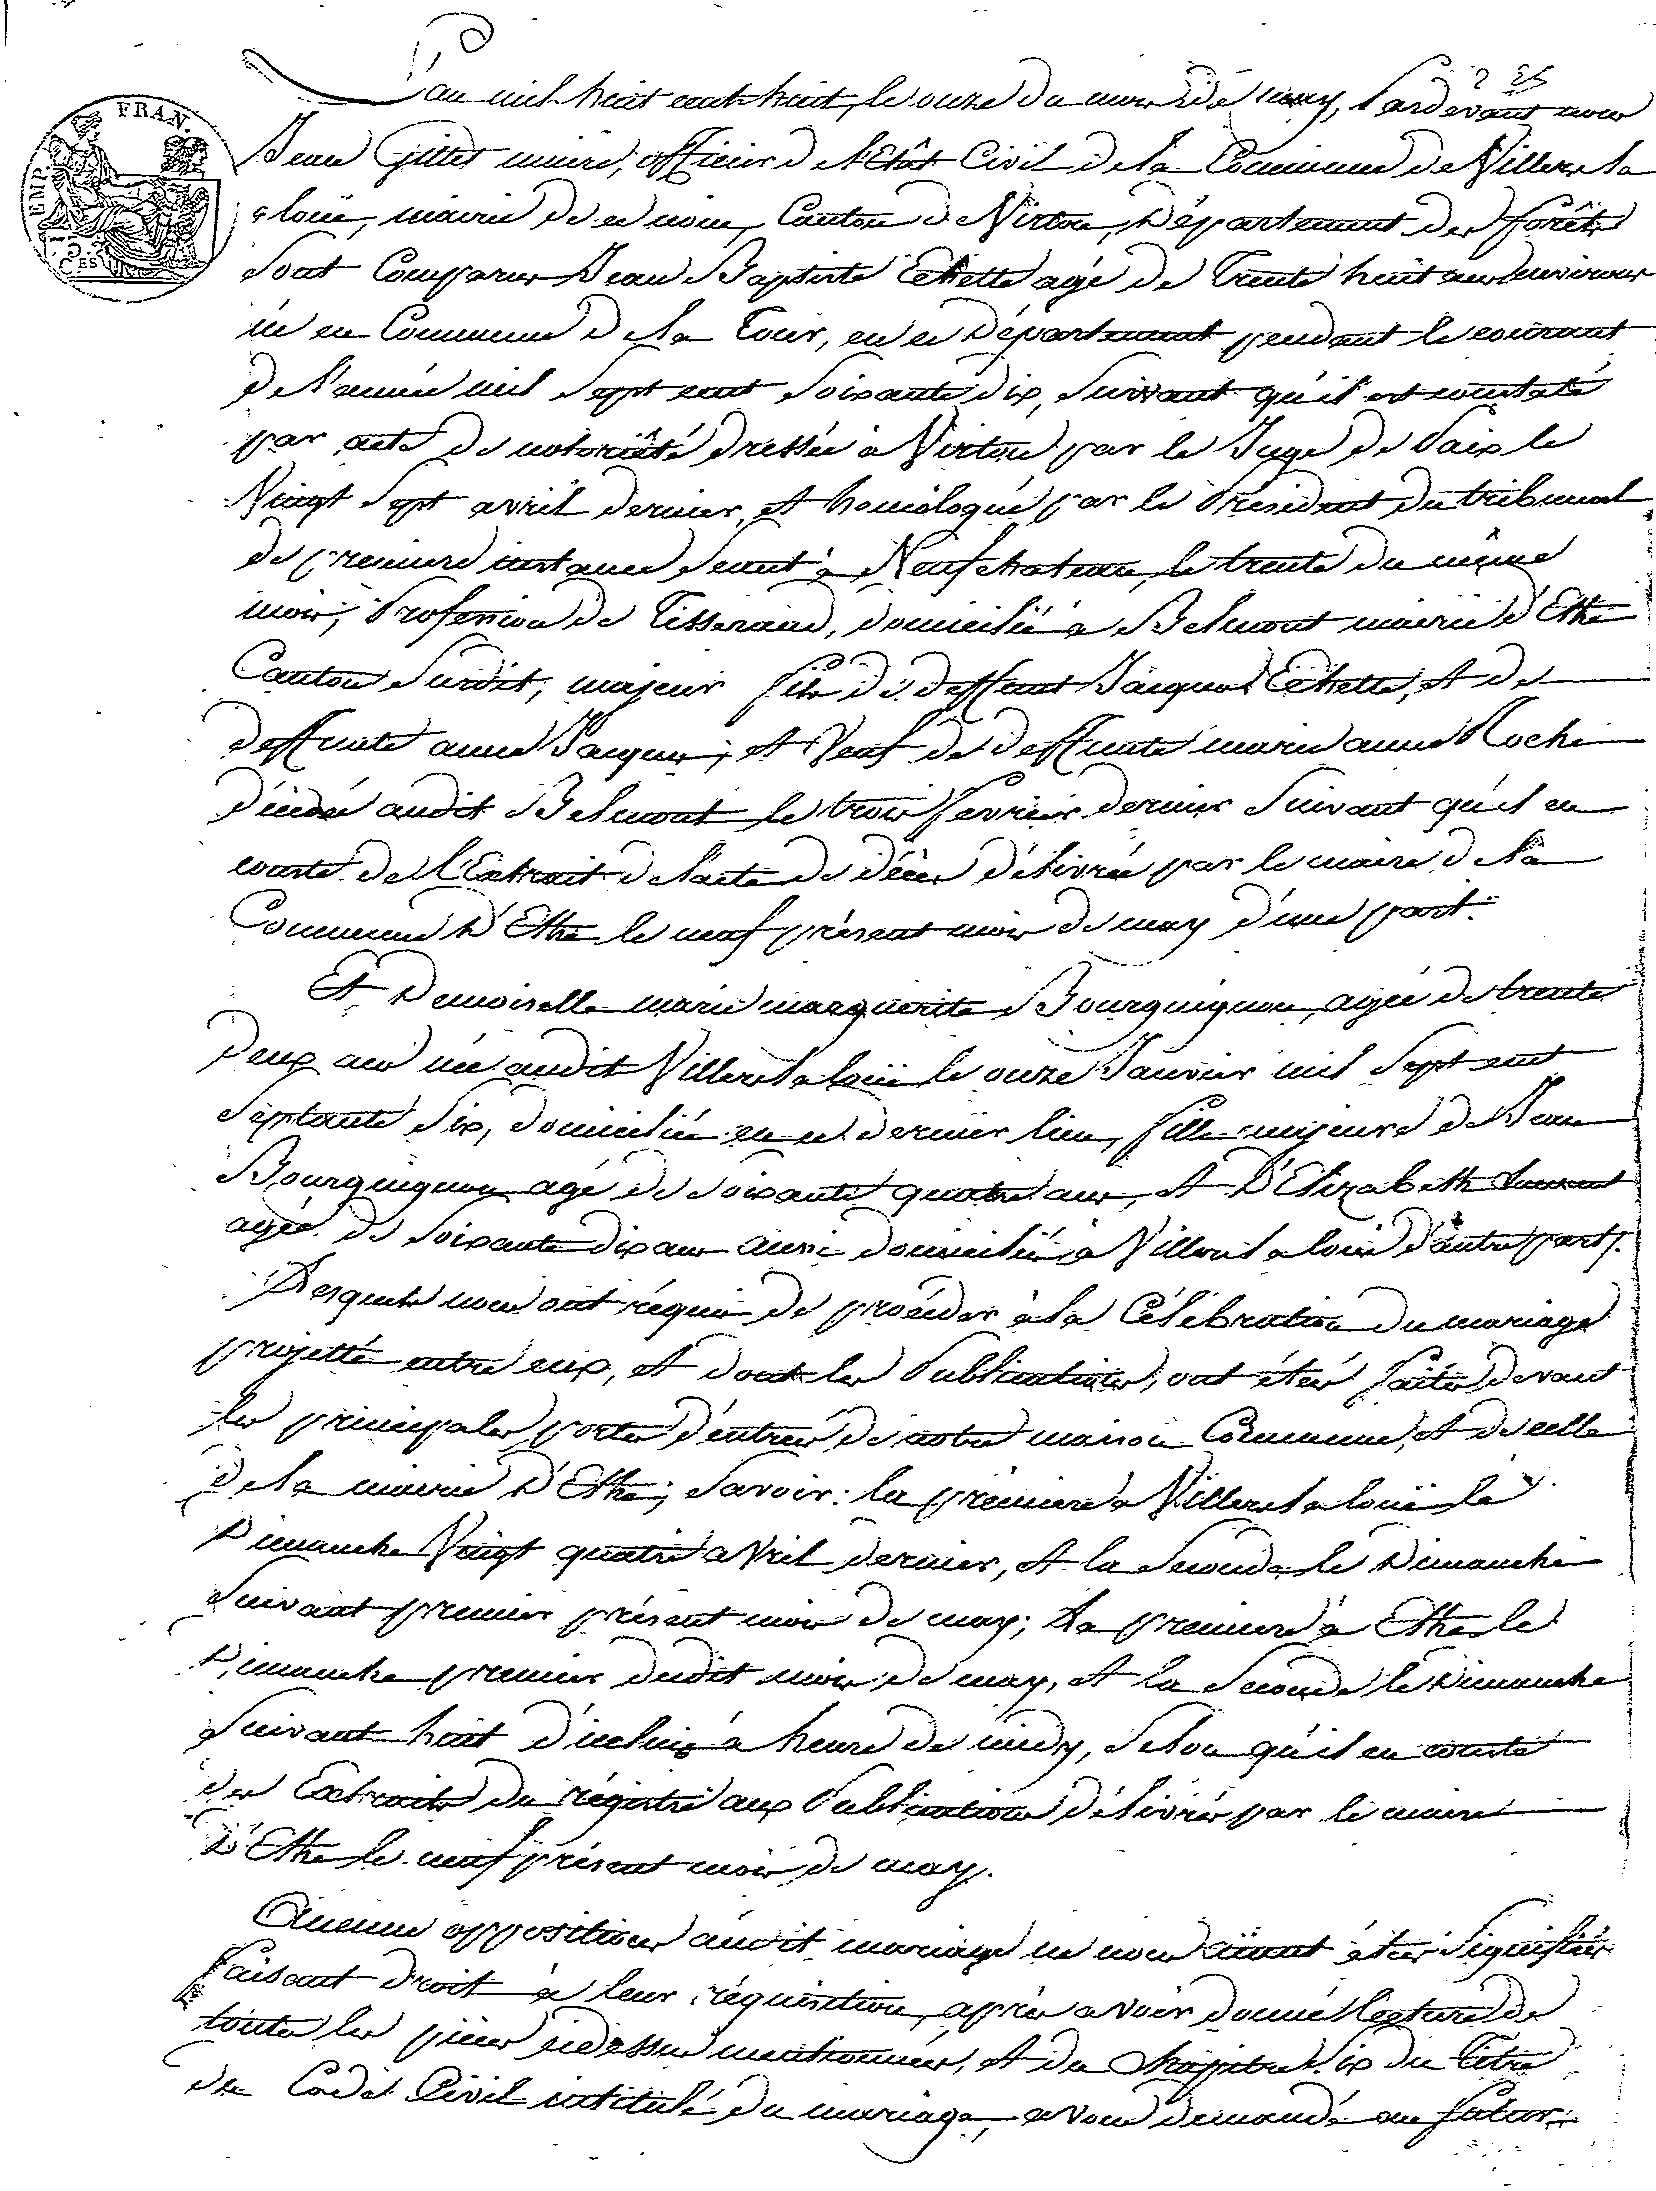 EMP. FRAN.
75 CES
2 25
L'an mil huit cent huit, le onze du mois de may, Pardevant nous
Jean Gillet maire, officier de l'Etât Civil de la Commune de Villers la
loüe, mairie de ce nom, Canton de Virton, Département des forêts
Sont Comparus Jean Baptiste Echette agé de Trente huit ans environs
né en Commune de la Tour, en ce Département pendant le courant
de l'année mil Sept cent Soixante dix, Suivant qu'il est constaté
par acte de notoriété dressée à Virton par le Juge de Paix le
Vingt Sept avril dernier, et homologué par le Président du tribunal
de premiere instance Seant à Neufchateau, le trente du même
mois, Profession de Tisserand, domicilié à Belmont mairie d'Ethe
Canton Surdit, majeur fils de deffunt Jacques Echette, et de
deffunte anne Jacques, et Veuf de deffunte marie anne Roche
décédé audit Belmont le trois fevrier dernier Suivant qu'il en
conste de l'Extrait de l'acte de décès délivrée par le maire de la
Commune d'Ethe le neuf présent mois de may d'une part.
Et Demoiselle marie marguerite Bourguignon, agée de trente
deux ans née audit Villers la loüe le onze Janvier mil Sept cent
Septante Six, domiciliée en ce dernier lieu, fille majeure de Jean
Bourguignon agé de Soixante quatre ans, et D'Elizabeth
agée de Soixante dix ans aussi domiciliés à Villers la loüe d'autre part.
Lesquels nous ont réquis de procéder à la Célébration du mariage
projetté entre eux, et dont les Publications, ont étés faites devant
les principales portes d'entrée de notre maison Commune, et de celle
de la mairie D'Ethe; Savoir: la premiere à Villers la loüe le
Dimanche Vingt quatre aVril dernier, et la Seconde le Dimanche
Suivant premier présent mois de may; La premiere à Ethe le
Dimanche premier dudit mois de may, et la Seconde le Dimanche
Suivant huit d'icelui à heure de midy, Selon qu'il en conste
des Extraits du régistre aux Publications délivrés par le maire
D'Ethe le neuf présent mois de may.
Aucune oppositions audit mariage ne nous aïant étés Signifiées
faisant droit à leur réquisition, après avoir donné lecture de
toutes les pieces cidessus mentionnées, et du Chapitre Six du Titre
du Code Civil intitulé du mariage, avons demandé au futur